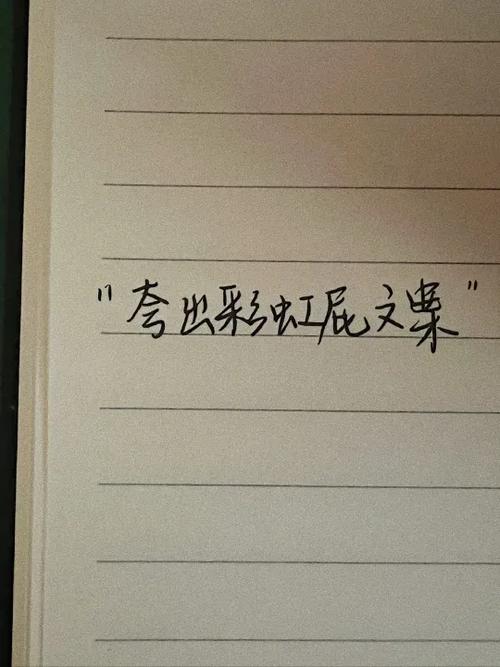 "夸出彩虹屁文案"